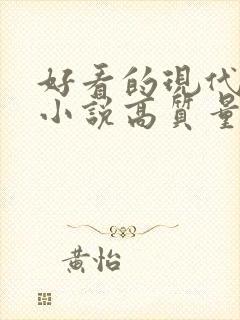 好看的現代
小說高質量
黃怡